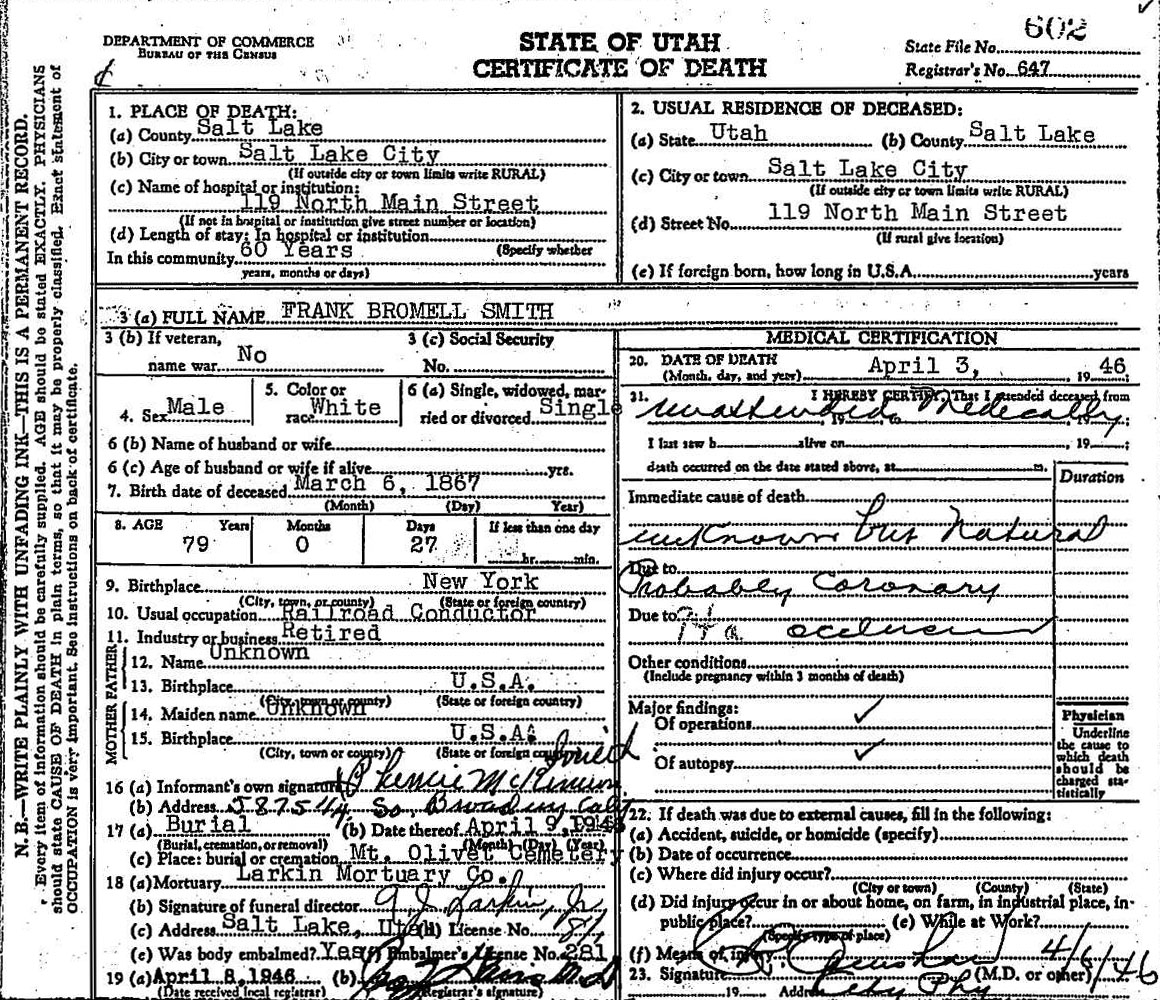 602
DEPARTMENT OF COMMERCE
BUREAU OF THE CENSUS
STATE OF UTAH
CERTIFICATE OF DEATH
State File No.
Registrar's No. 647
N. B.—WRITE PLAINLY WITH UNFADING INK—THIS IS A PERMANENT RECORD.
Every item of information should be carefully supplied. AGE should be stated EXACTLY. PHYSICIANS
should state CAUSE OF DEATH in plain terms, so that it may be properly classified. Exact statement of
OCCUPATION is very important. See instructions on back of certificate.
1. PLACE OF DEATH:
(a) County Salt Lake
(b) City or town Salt Lake City
(If outside city or town limits write RURAL)
(c) Name of hospital or institution:
119 North Main Street
(If not in hospital or institution give street number or location)
(d) Length of stay: In hospital or institution
(Specify whether
In this community 60 Years
years, months or days)
2. USUAL RESIDENCE OF DECEASED:
(a) State Utah (b) County Salt Lake
(c) City or town Salt Lake City
(If outside city or town limits write RURAL)
(d) Street No. 119 North Main Street
(If rural give location)
(e) If foreign born, how long in U.S.A. years
3 (a) FULL NAME FRANK BROMELL SMITH
3 (b) If veteran, 3 (c) Social Security
name war No No.
4. Sex Male
5. Color or
race White
6 (a) Single, widowed, mar-
ried or divorced Single
6 (b) Name of husband or wife
6 (c) Age of husband or wife if alive yrs.
7. Birth date of deceased March 6, 1867
(Month) (Day) Year)
8. AGE Years Months Days If less than one day
79 0 27 hr. min.
9. Birthplace New York
(City, town, or county) (State or foreign country)
10. Usual occupation Railroad Conductor
11. Industry or business Retired
FATHER
12. Name Unknown
13. Birthplace U.S.A.
(City, town or county) (State or foreign country)
MOTHER
14. Maiden name Unknown
15. Birthplace U.S.A.
(City, town or county) (State or foreign country)
16 (a) Informant's own signature
(b) Address So. Broadway
17 (a) Burial (b) Date thereof April 9, 1946
(Burial, cremation, or removal) (Month) (Day) (Year)
(c) Place: burial or cremation Mt. Olivet Cemetery
18 (a) Mortuary Larkin Mortuary Co.
(b) Signature of funeral director Larkin, Jr
(c) Address Salt Lake, Utah (d) License No.
(e) Was body embalmed? Yes (f) Embalmer's License No. 281
19 (a) April 8, 1946 (b)
(Date received local registrar) (Registrar's signature)
MEDICAL CERTIFICATION
20. DATE OF DEATH April 3, 19 46
(Month, day, and year)
21. I HEREBY CERTIFY, That I attended deceased from
unattended Medically
19 to 19 ;
I last saw h alive on , 19 ;
death occurred on the date stated above, at m.
Duration
Immediate cause of death
unknown but Natural
Due to
Probably Coronary
Due to occlusion
Other conditions
(Include pregnancy within 3 months of death)
Major findings:
Of operations ✓
Of autopsy ✓
Physician
Underline
the cause to
which death
should be
charged sta-
tistically
22. If death was due to external causes, fill in the following:
(a) Accident, suicide, or homicide (specify)
(b) Date of occurrence
(c) Where did injury occur?
(City or town) (County) (State)
(d) Did injury occur in or about home, on farm, in industrial place, in-
public place? (e) While at Work?
(Specify type of place)
(f) Means of injury
23. Signature (M.D. or other) 46
19 Address City Phy